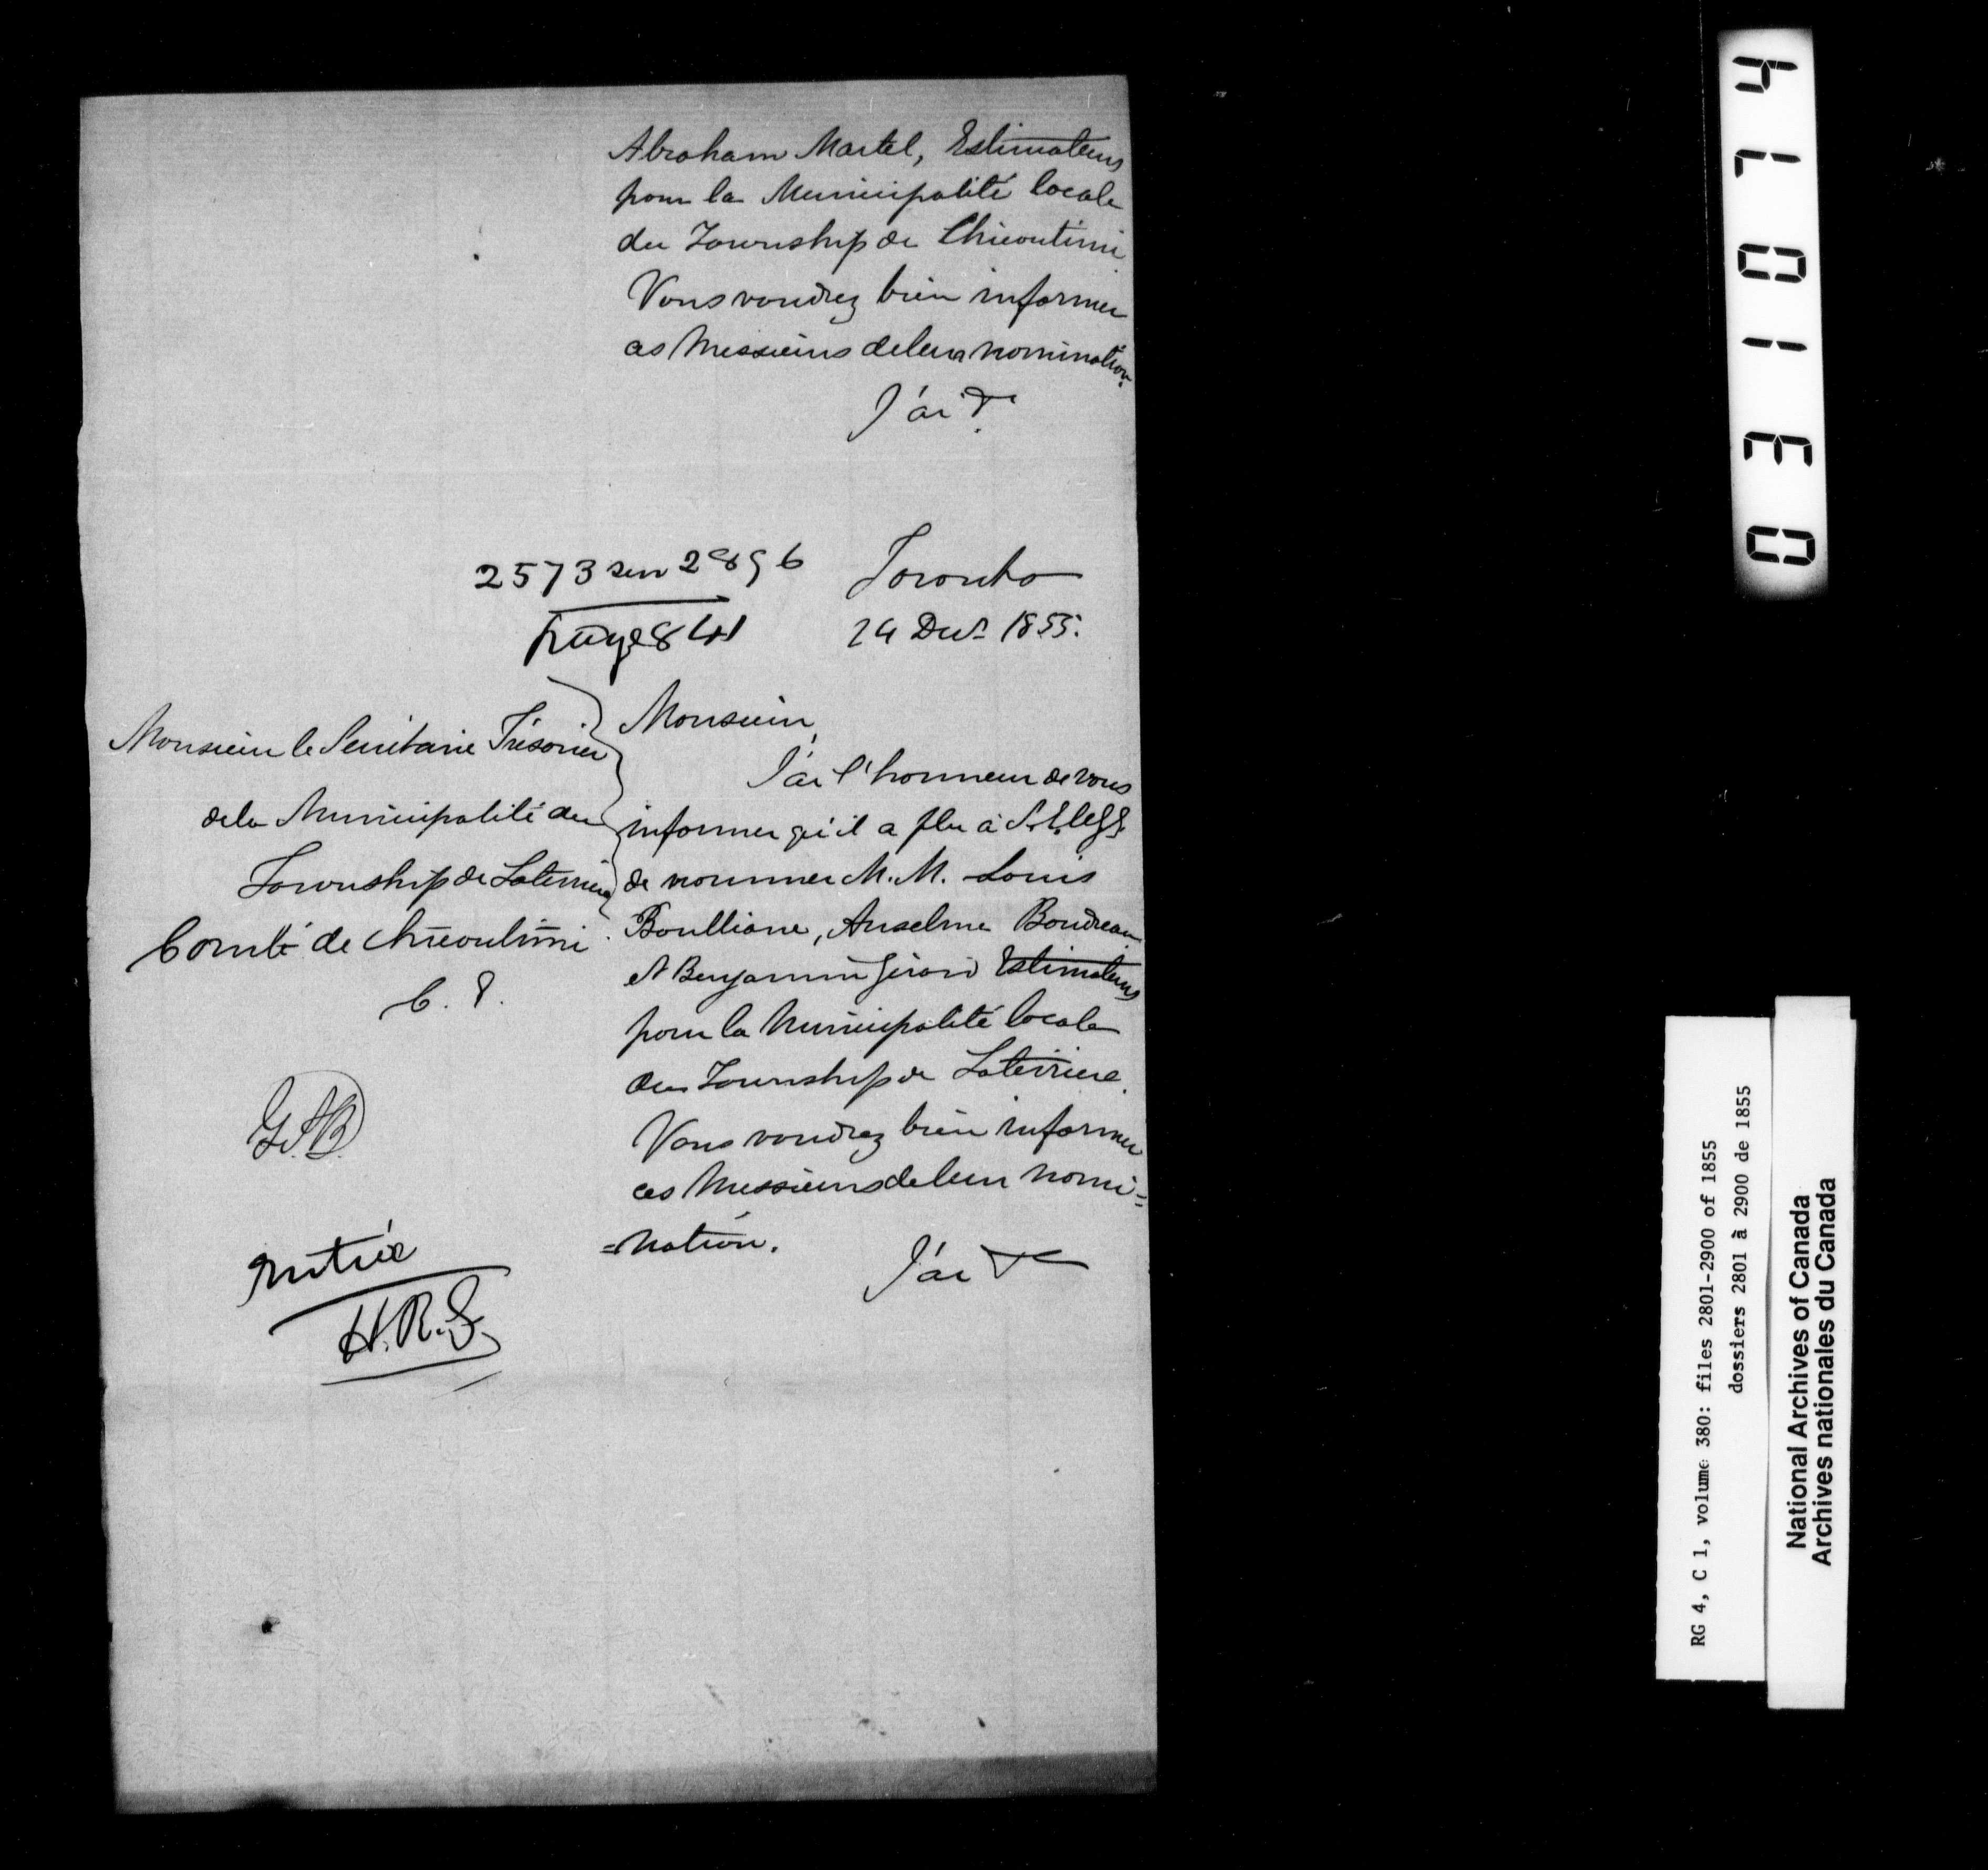 Abraham Martel, Estimateurs
pour la Municipalité locale
du Township de Chicoutimi
Vous voudrez bien informer
ces Messieurs de leur nomination.
J'ai &c
2573 sur 2896
page 841
Toronto
24 Decr 1855.
Monsieur le Secrétaire Trésorier
de la Municipalité du
Township de Laterrière
Comté de Chicoutimi
C. E.
Monsieur,
J'ai l'honneur de vous
informer qu'il a plu à S. E. le G. G.
de nommer M. M. Louis
Boulliane, Anselme Boudreau
et Benjamin Girard Estimateurs
pour la Municipalité locale
du Township de Laterrière.
Vous voudrez bien informer
ces Messieurs de leur nomi=
=nation.
J'ai &c
H. R. S.
0 3 1 0 7 4
RG 4, C 1, volume 380: files 2801-2900 of 1855
dossiers 2801 à 2900 de 1855
National Archives of Canada
Archives nationales du Canada